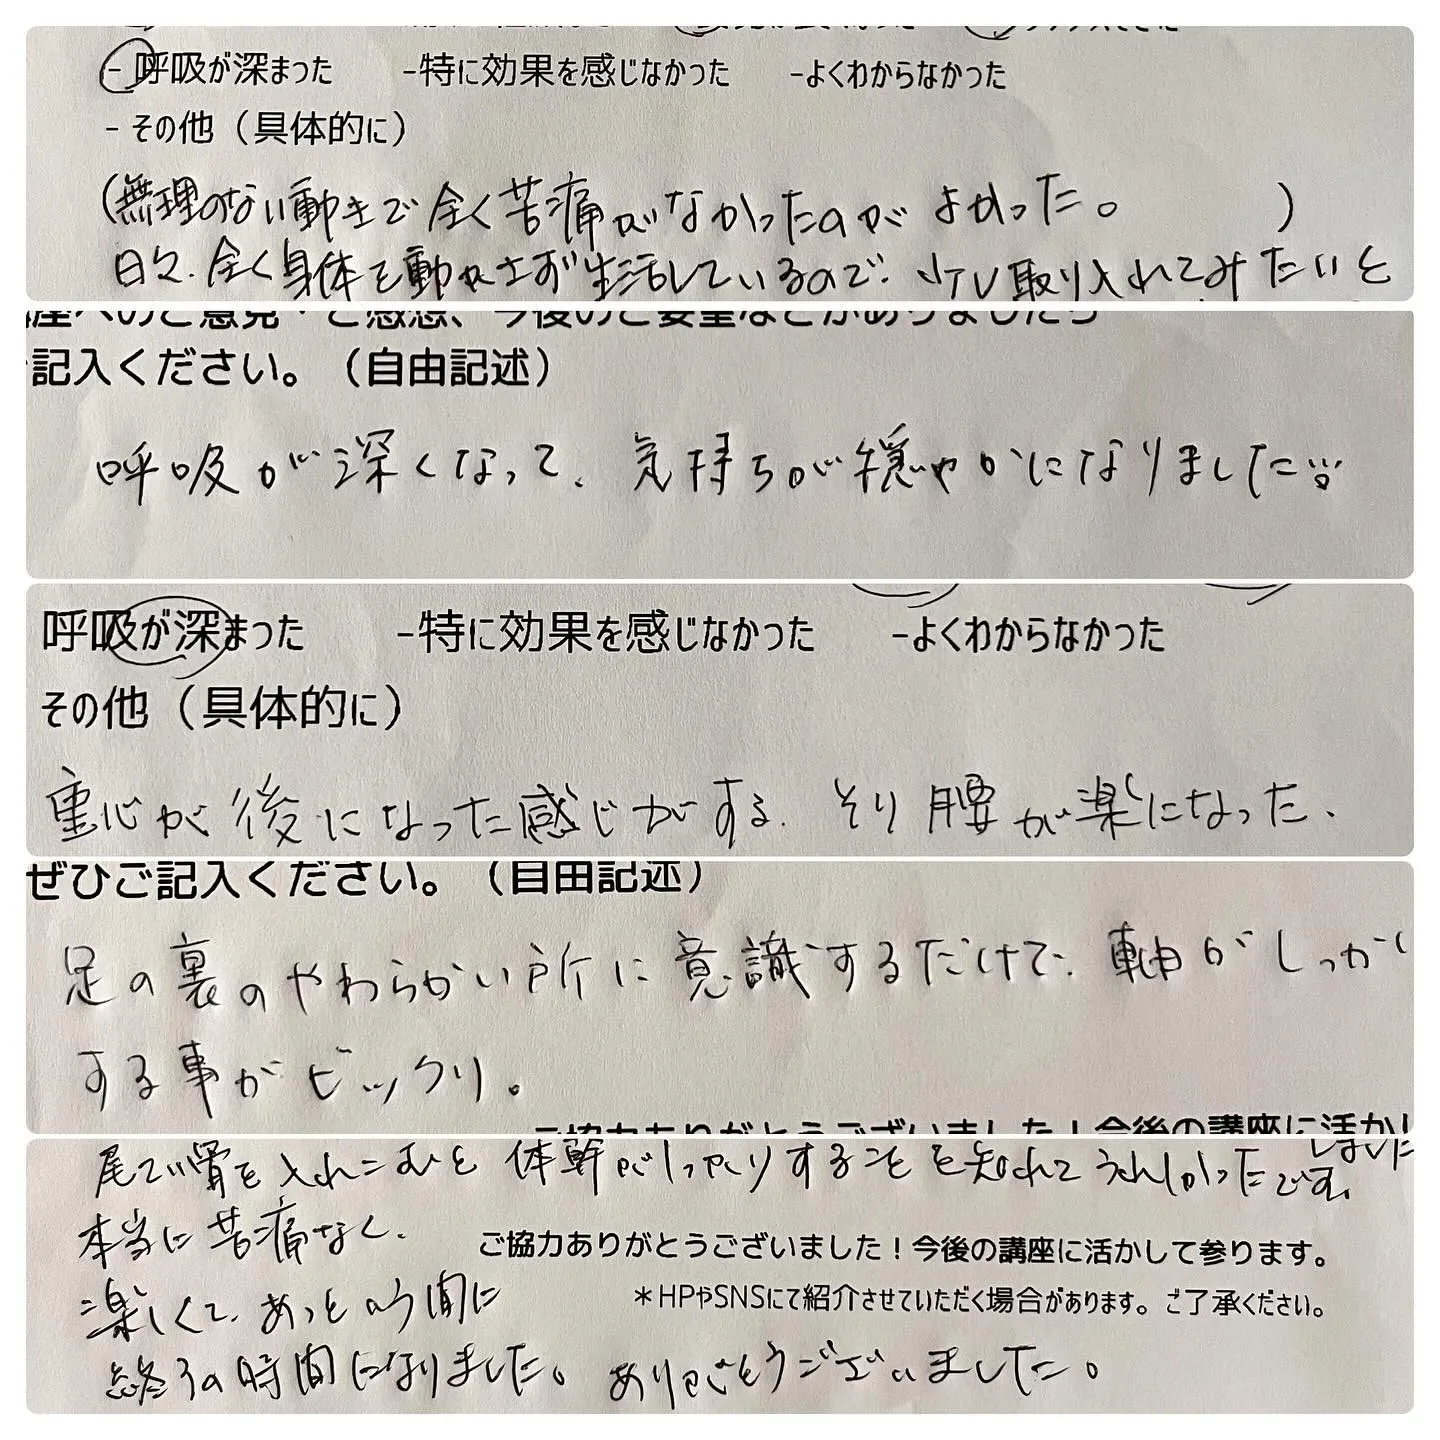 - 呼吸が深まった -特に効果を感じなかった -よくわからなかった
- その他（具体的に）
(無理のない動きで全く苦痛がなかったのがよかった。)
日々、全く身体を動かさず生活しているので、少し取り入れてみたいと
座へのご意見・ご感想、今後のご要望などがありましたら
記入ください。（自由記述）
呼吸が深くなって、気持ちが穏やかになりました
呼吸が深まった -特に効果を感じなかった -よくわからなかった
その他（具体的に）
重心が後になった感じがする、そり腰が楽になった、
ぜひご記入ください。（自由記述）
足の裏のやわらかい所に意識するだけで、軸がしっかり
する事がビックリ。
ご協力ありがとうございました！今後の講座に活かし
しました
尾てい骨を入れこむと体幹がしっかりすることを知れてうれしかったです。
本当に苦痛なく、
ご協力ありがとうございました！今後の講座に活かして参ります。
楽しくて、あっという間に
＊HPやSNSにて紹介させていただく場合があります。ご了承ください。
終りの時間になりました。ありがとうございました。